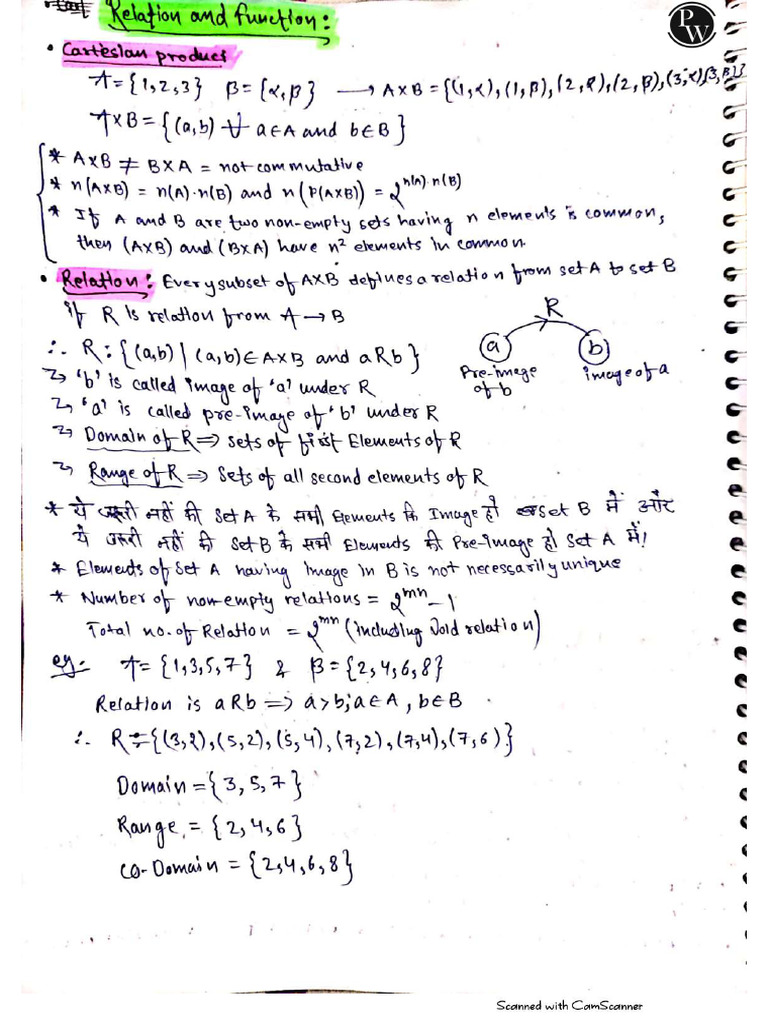 Relation and function:
PW
• Cartesian product
A = {1,2,3} B = {α,β} → A×B = {(1,α),(1,β),(2,α),(2,β),(3,α),(3,β)}
A×B = {(a,b) ∀ a∈A and b∈B}
* A×B ≠ B×A = not commutative
* n(A×B) = n(A)·n(B) and n(P(A×B)) = 2^{n(A)·n(B)}
* If A and B are two non-empty sets having n elements is common,
then (A×B) and (B×A) have n² elements in common.
• Relation: Every subset of A×B defines a relation from set A to set B
if R is relation from A → B
R
∴ R: {(a,b) | (a,b)∈A×B and aRb}
a b
Pre-image of b
image of a
→ 'b' is called image of 'a' under R
→ 'a' is called pre-image of 'b' under R
→ Domain of R ⇒ sets of first Elements of R
→ Range of R ⇒ Sets of all second elements of R
* ये जरूरी नहीं की Set A के सभी Elements कि Image हो Set B में और
ये जरूरी नहीं की Set B के सभी Elements की Pre-Image हो Set A में।
* Elements of Set A having image in B is not necessarily unique
* Number of non-empty relations = 2^{mn} - 1
Total no. of Relation = 2^{mn} (including void relation)
eg:- A = {1,3,5,7} & B = {2,4,6,8}
Relation is aRb ⇒ a>b; a∈A, b∈B
∴ R = {(3,2),(5,2),(5,4),(7,2),(7,4),(7,6)}
Domain = {3,5,7}
Range = {2,4,6}
co-Domain = {2,4,6,8}
Scanned with CamScanner